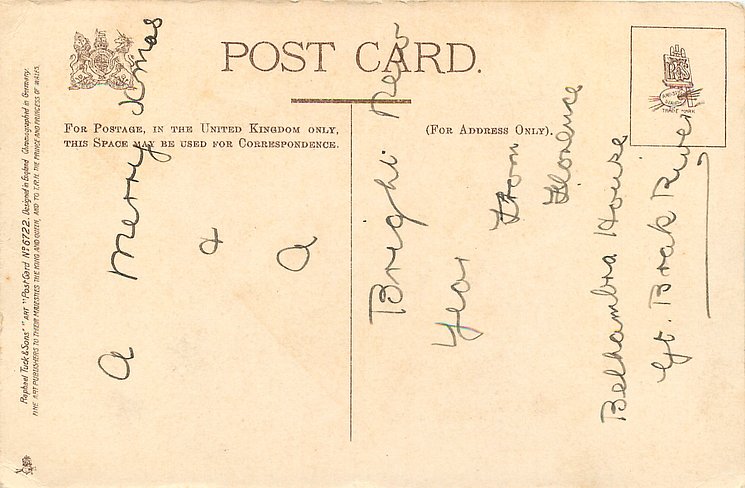 POST CARD.
FOR POSTAGE, IN THE UNITED KINGDOM ONLY,
THIS SPACE MAY BE USED FOR CORRESPONDENCE.
(FOR ADDRESS ONLY).
TRADE MARK
Raphael Tuck & Sons' "ART" Post Card Nº 6722. Designed in England Chromographed in Germany.
FINE ART PUBLISHERS TO THEIR MAJESTIES THE KING AND QUEEN, AND TO T.R.H. THE PRINCE AND PRINCESS OF WALES.
a Merry Xmas
&
a
Bright New
Year
From
Florence
Belhambra House
Gt. Brak River